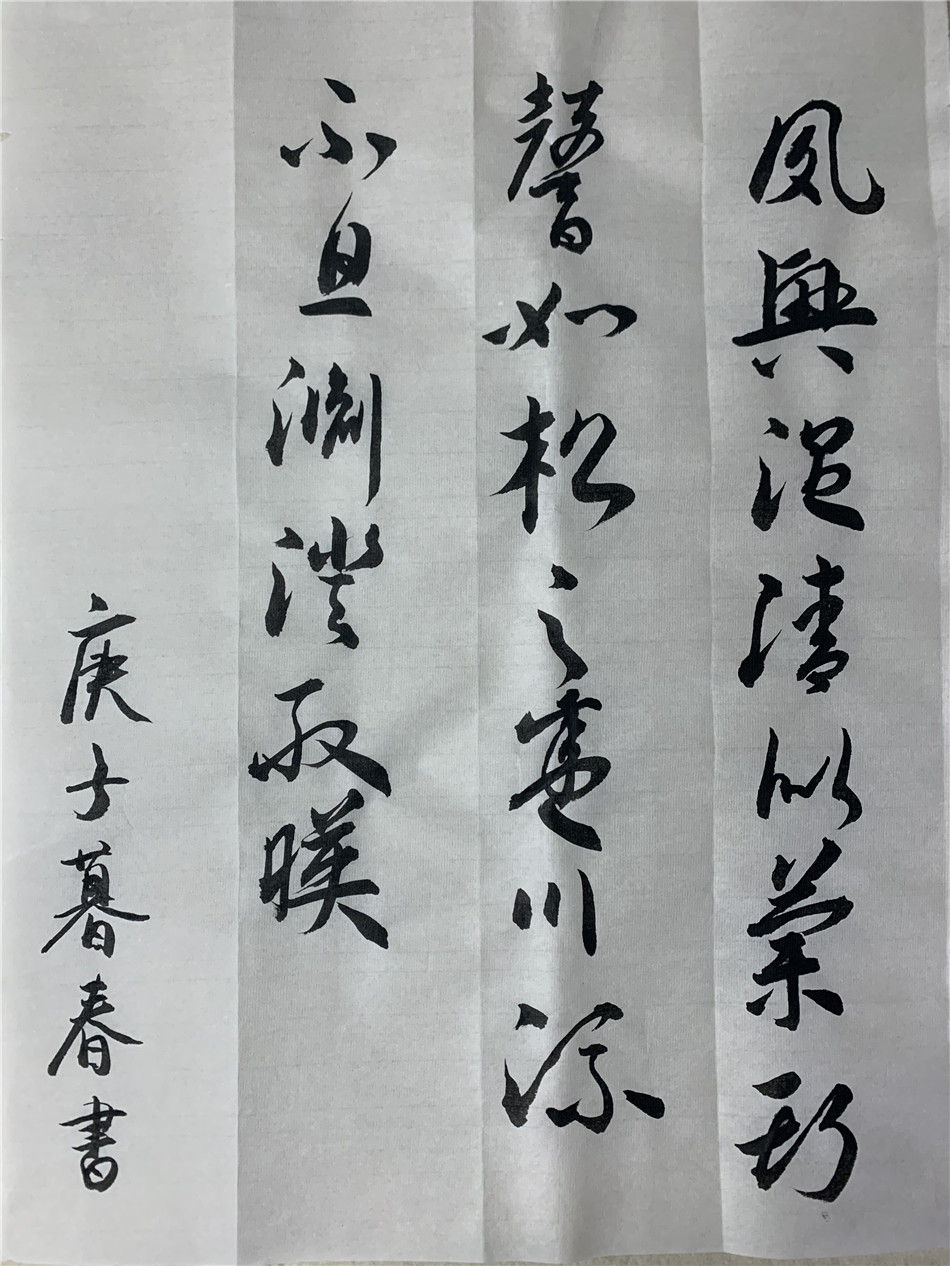 夙興温凊似蘭斯
馨如松之盛川流
不息淵澄取暎
庚子暮春書